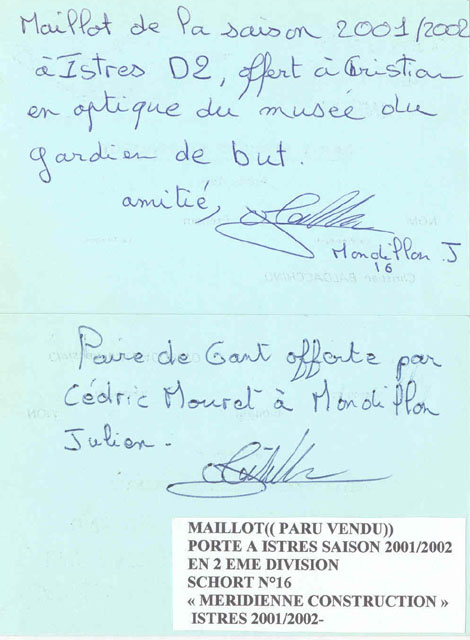 Maillot de la saison 2001/2002
à Istres D2, offert à Cristian
en optique du musée du
gardien de but.
amitié,
Mondillon J
16
Paire de Gant offerte par
Cédric Mouret à Mondillon
Julien -
MAILLOT(( PARU VENDU))
PORTE A ISTRES SAISON 2001/2002
EN 2 EME DIVISION
SCHORT N°16
« MERIDIENNE CONSTRUCTION »
ISTRES 2001/2002-